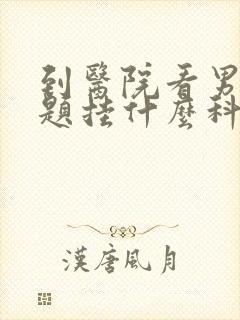 到醫院看男
題挂什麼科
漢唐風月